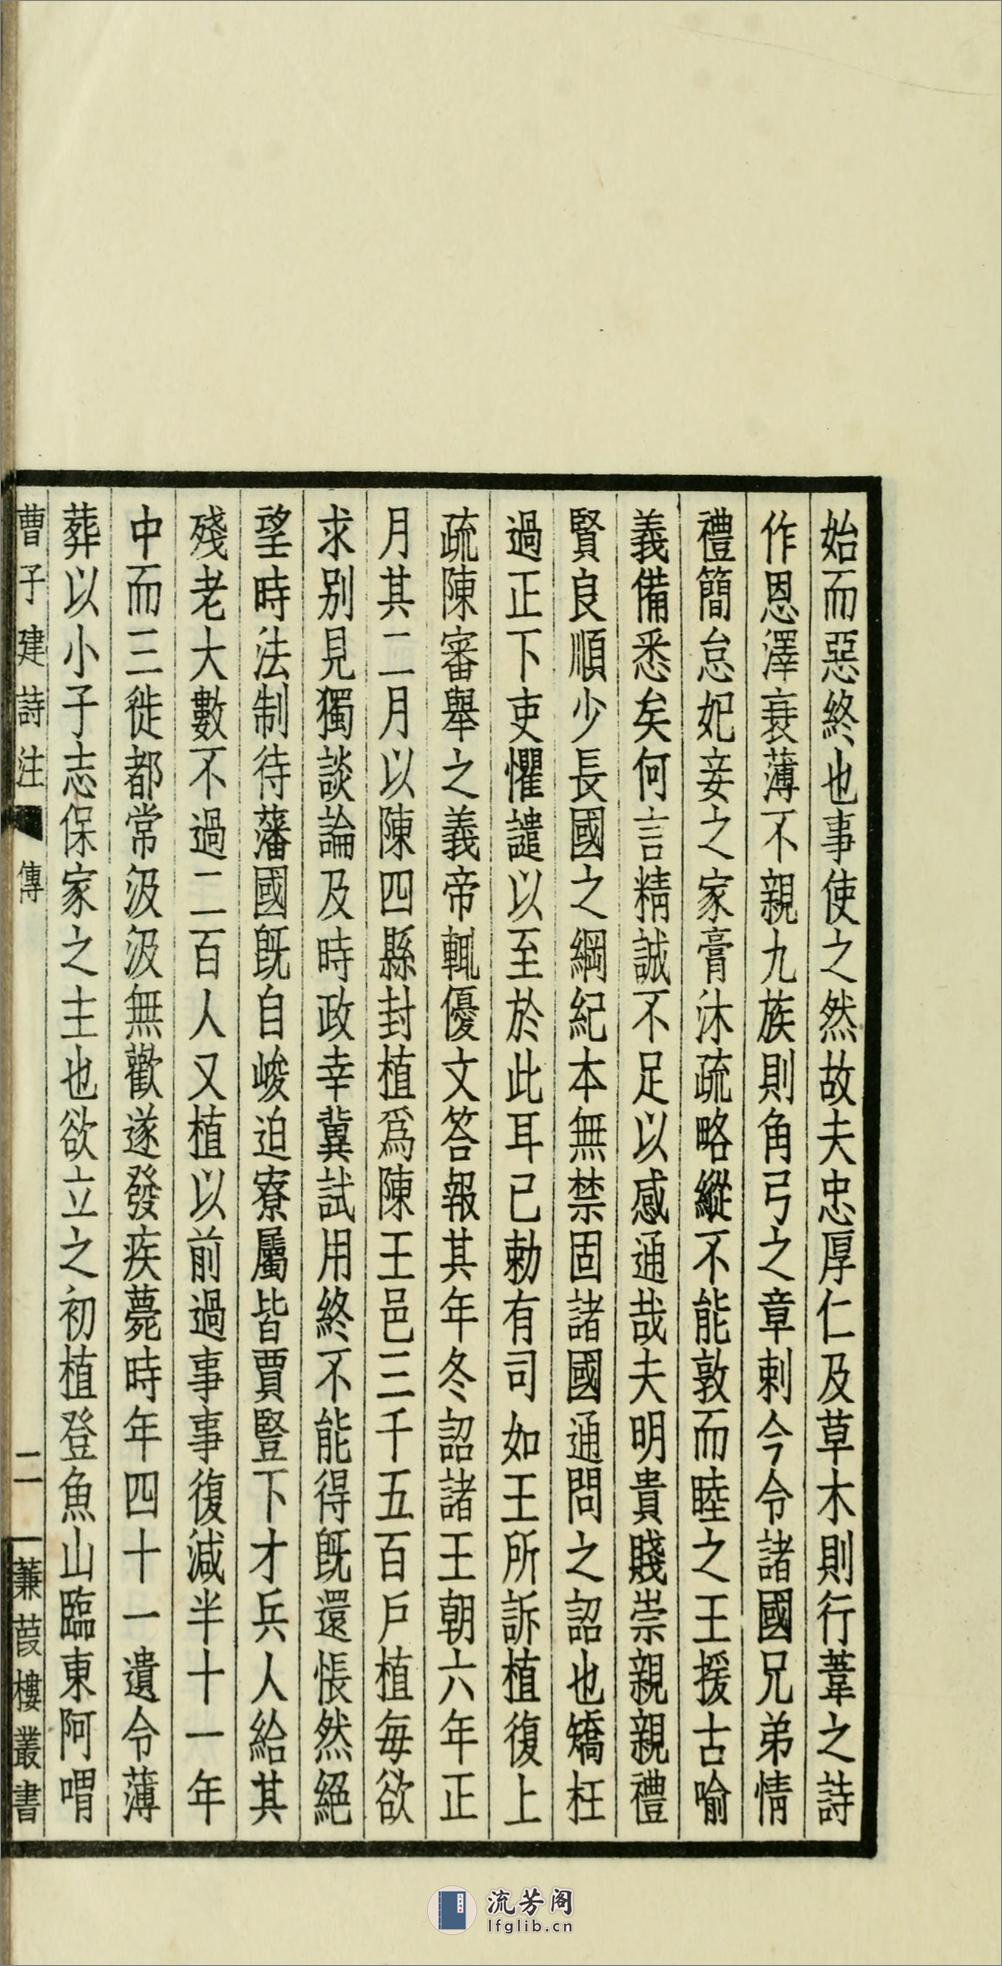 始而惡終也事使之然故夫忠厚仁及草木則行葦之詩
作恩澤衰薄不親九族則角弓之章刺今令諸國兄弟情
禮簡怠妃妾之家膏沐疏略縱不能敦而睦之王援古喻
義備悉矣何言精誠不足以感通哉夫明貴賤崇親親禮
賢良順少長國之綱紀本無禁固諸國通問之詔也矯枉
過正下吏懼譴以至於此耳已勅有司如王所訴植復上
疏陳審舉之義帝輒優文答報其年冬詔諸王朝六年正
月其二月以陳四縣封植爲陳王邑三千五百戶植每欲
求別見獨談論及時政幸冀試用終不能得旣還悵然絕
望時法制待藩國旣自峻迫寮屬皆賈豎下才兵人給其
殘老大數不過二百人又植以前過事事復減半十一年
中而三徙都常汲汲無歡遂發疾薨時年四十一遺令薄
葬以小子志保家之主也欲立之初植登魚山臨東阿喟
曹子建詩注 傳 二 蒹葭樓叢書
流芳阁
lfglib.cn